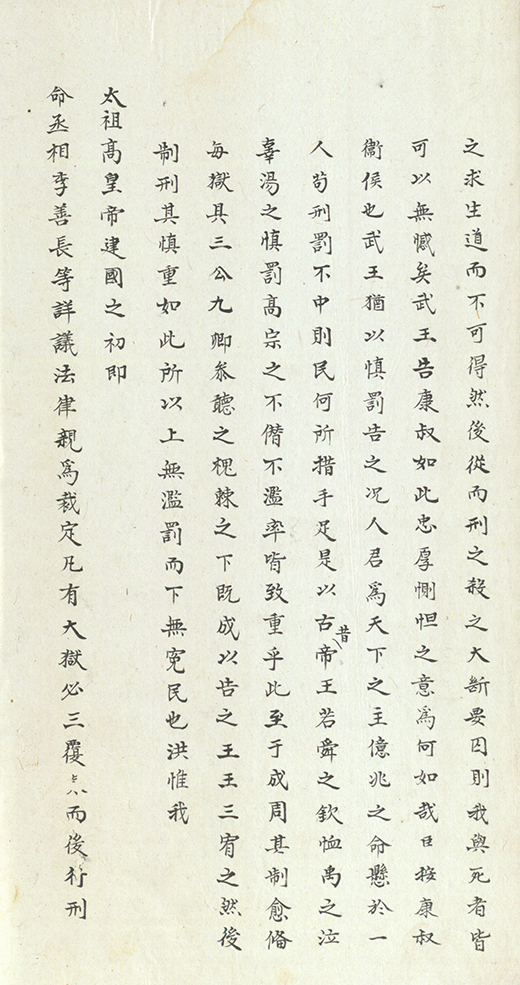 之求生道而不可得然後從而刑之殺之大斷要囚則我與死者皆
可以無憾矣武王告康叔如此忠厚惻怛之意爲何如哉臣按康叔
衞侯也武王猶以慎罰告之况人君爲天下之主億兆之命懸於一
人苟刑罰不中則民何所措手足是以古昔帝王若舜之欽恤禹之泣
辜湯之慎罰高宗之不僭不濫率皆致重乎此至于成周其制愈偹
每獄具三公九卿叅聽之槐棘之下既成以告之王王三宥之然後
制刑其慎重如此所以上無濫罰而下無寃民也洪惟我
太祖高皇帝建國之初即
命丞相李善長等詳議法律親爲裁定凡有大獄必三覆而後行刑